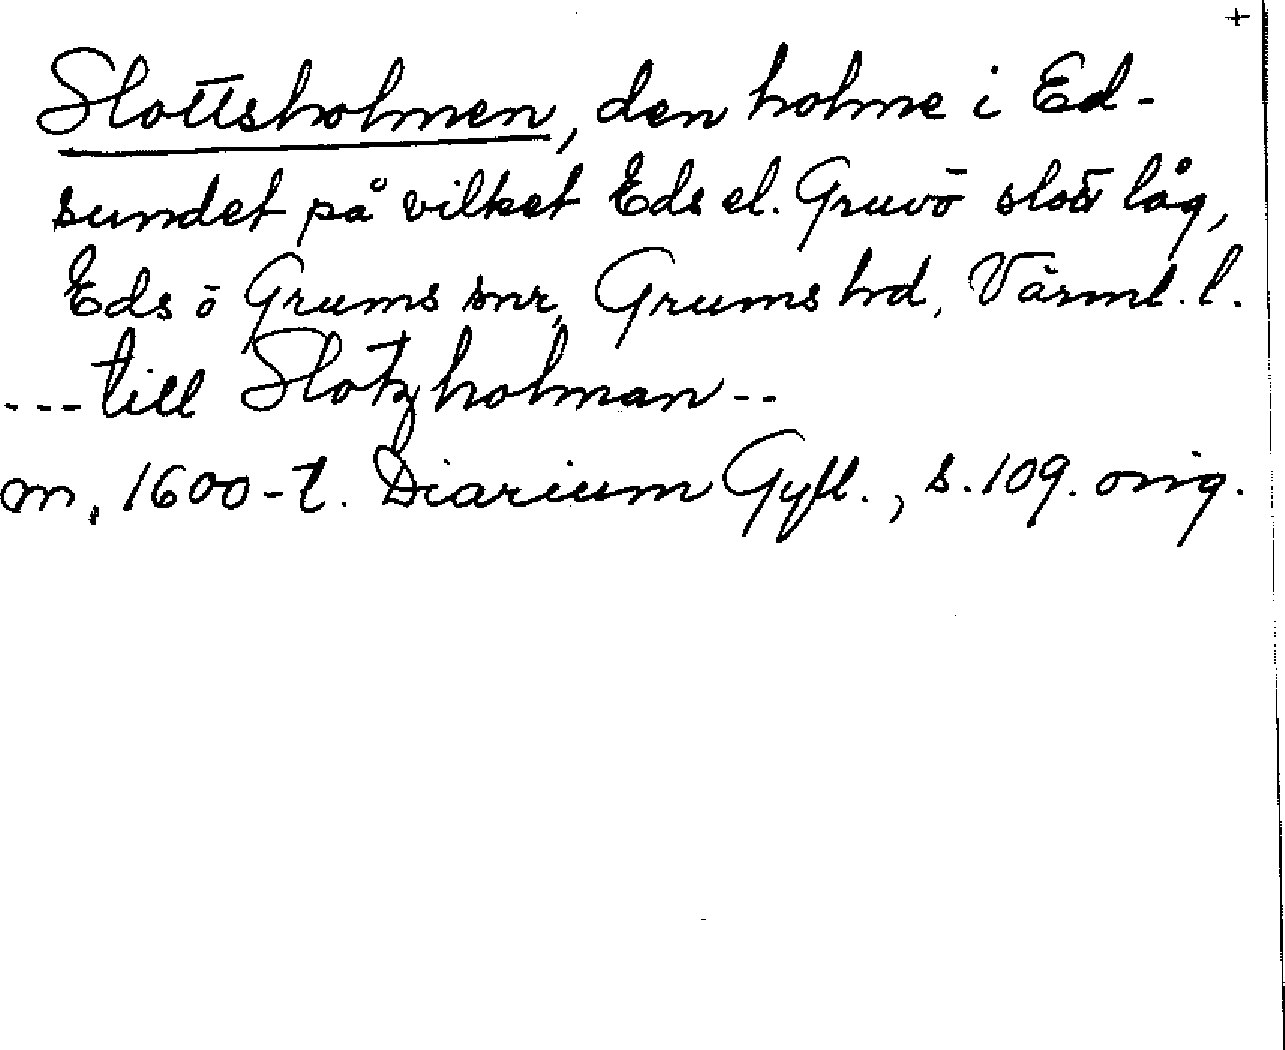 +
Slottsholmen, den holme i Ed-
sundet på vilket Eds el. Gruvö slott låg,
Eds ö Grums snr, Grums hd, Värml. l.
--- till Slotzholman --
m. 1600-t. Diarium Gyll., s. 109. orig.